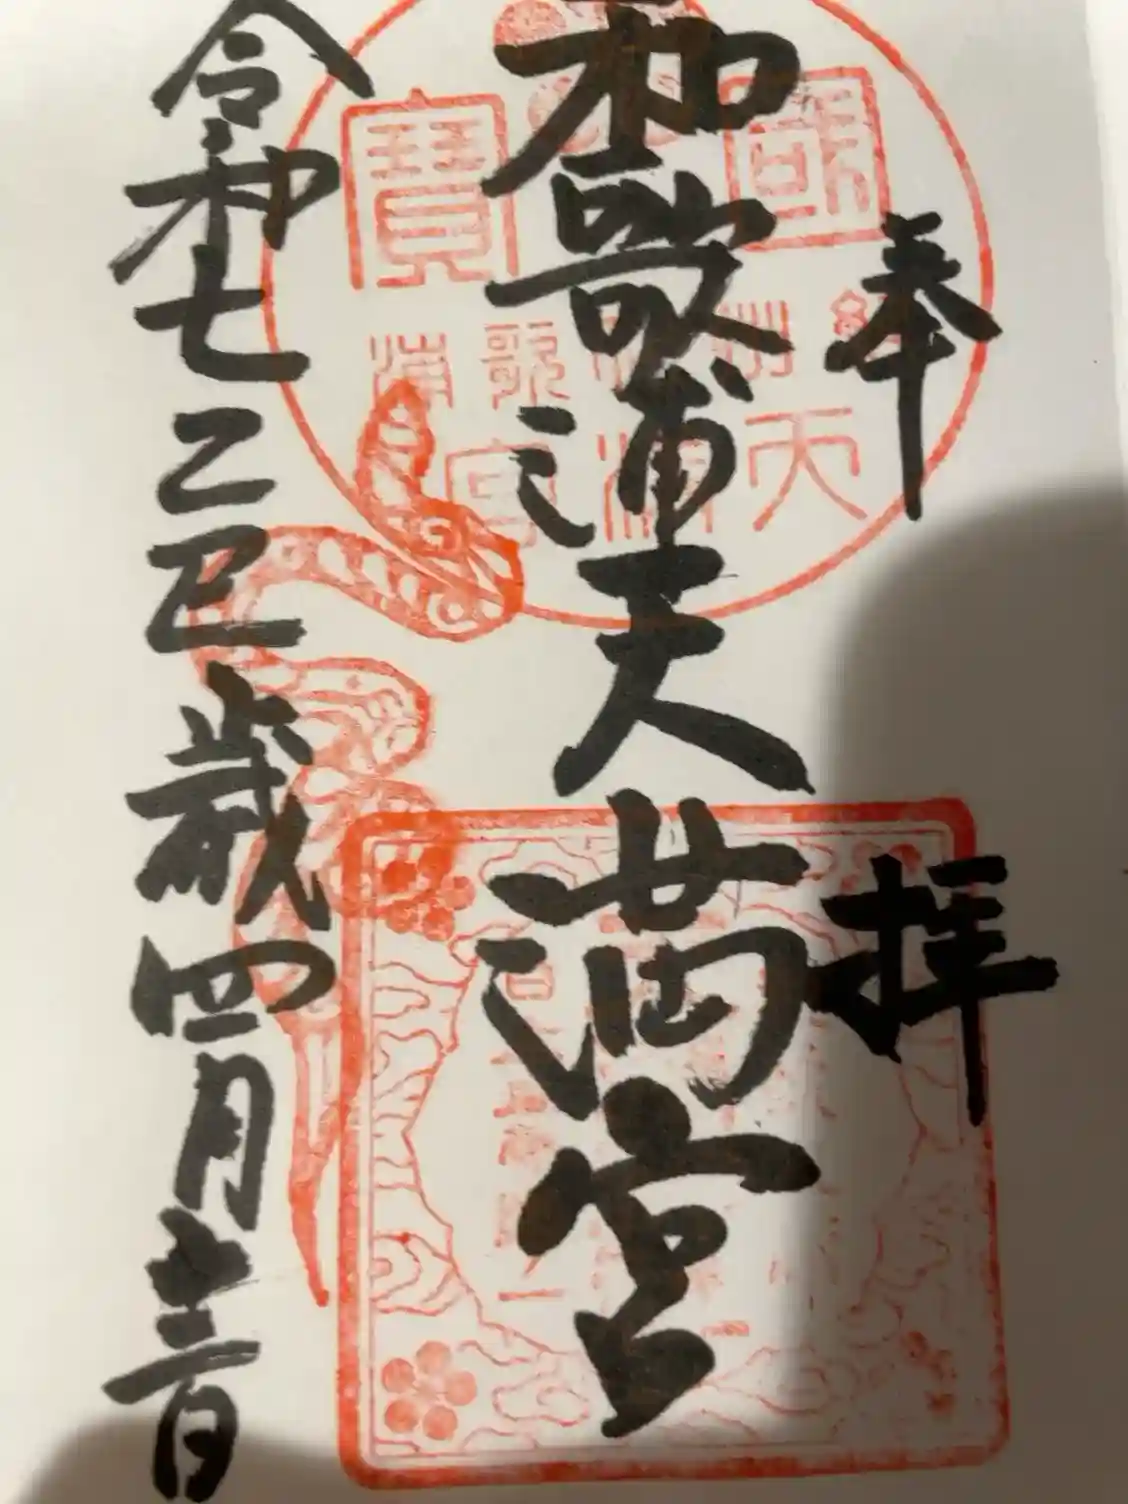 奉拝
和歌浦天満宮
令和七乙巳歳四月十三日
國寶
紀州和歌浦
天満宮